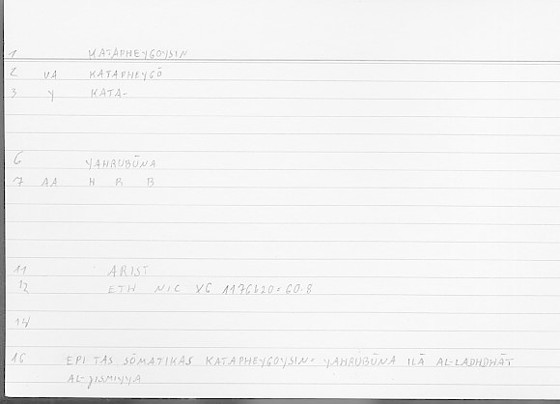 1 KATAPHEYGOYSIN
2 VA KATAPHEYGŌ
3 Y KATA-
6 YAHRUBŪNA
7 AA H R B
11 ARIST
12 ETH NIC X6 1176b20 = 60.8
14
16 EPI TAS SŌMATIKAS KATAPHEYGOYSIN = YAHRUBŪNA ILĀ AL-LADHDHĀT
AL-JISMIYYA